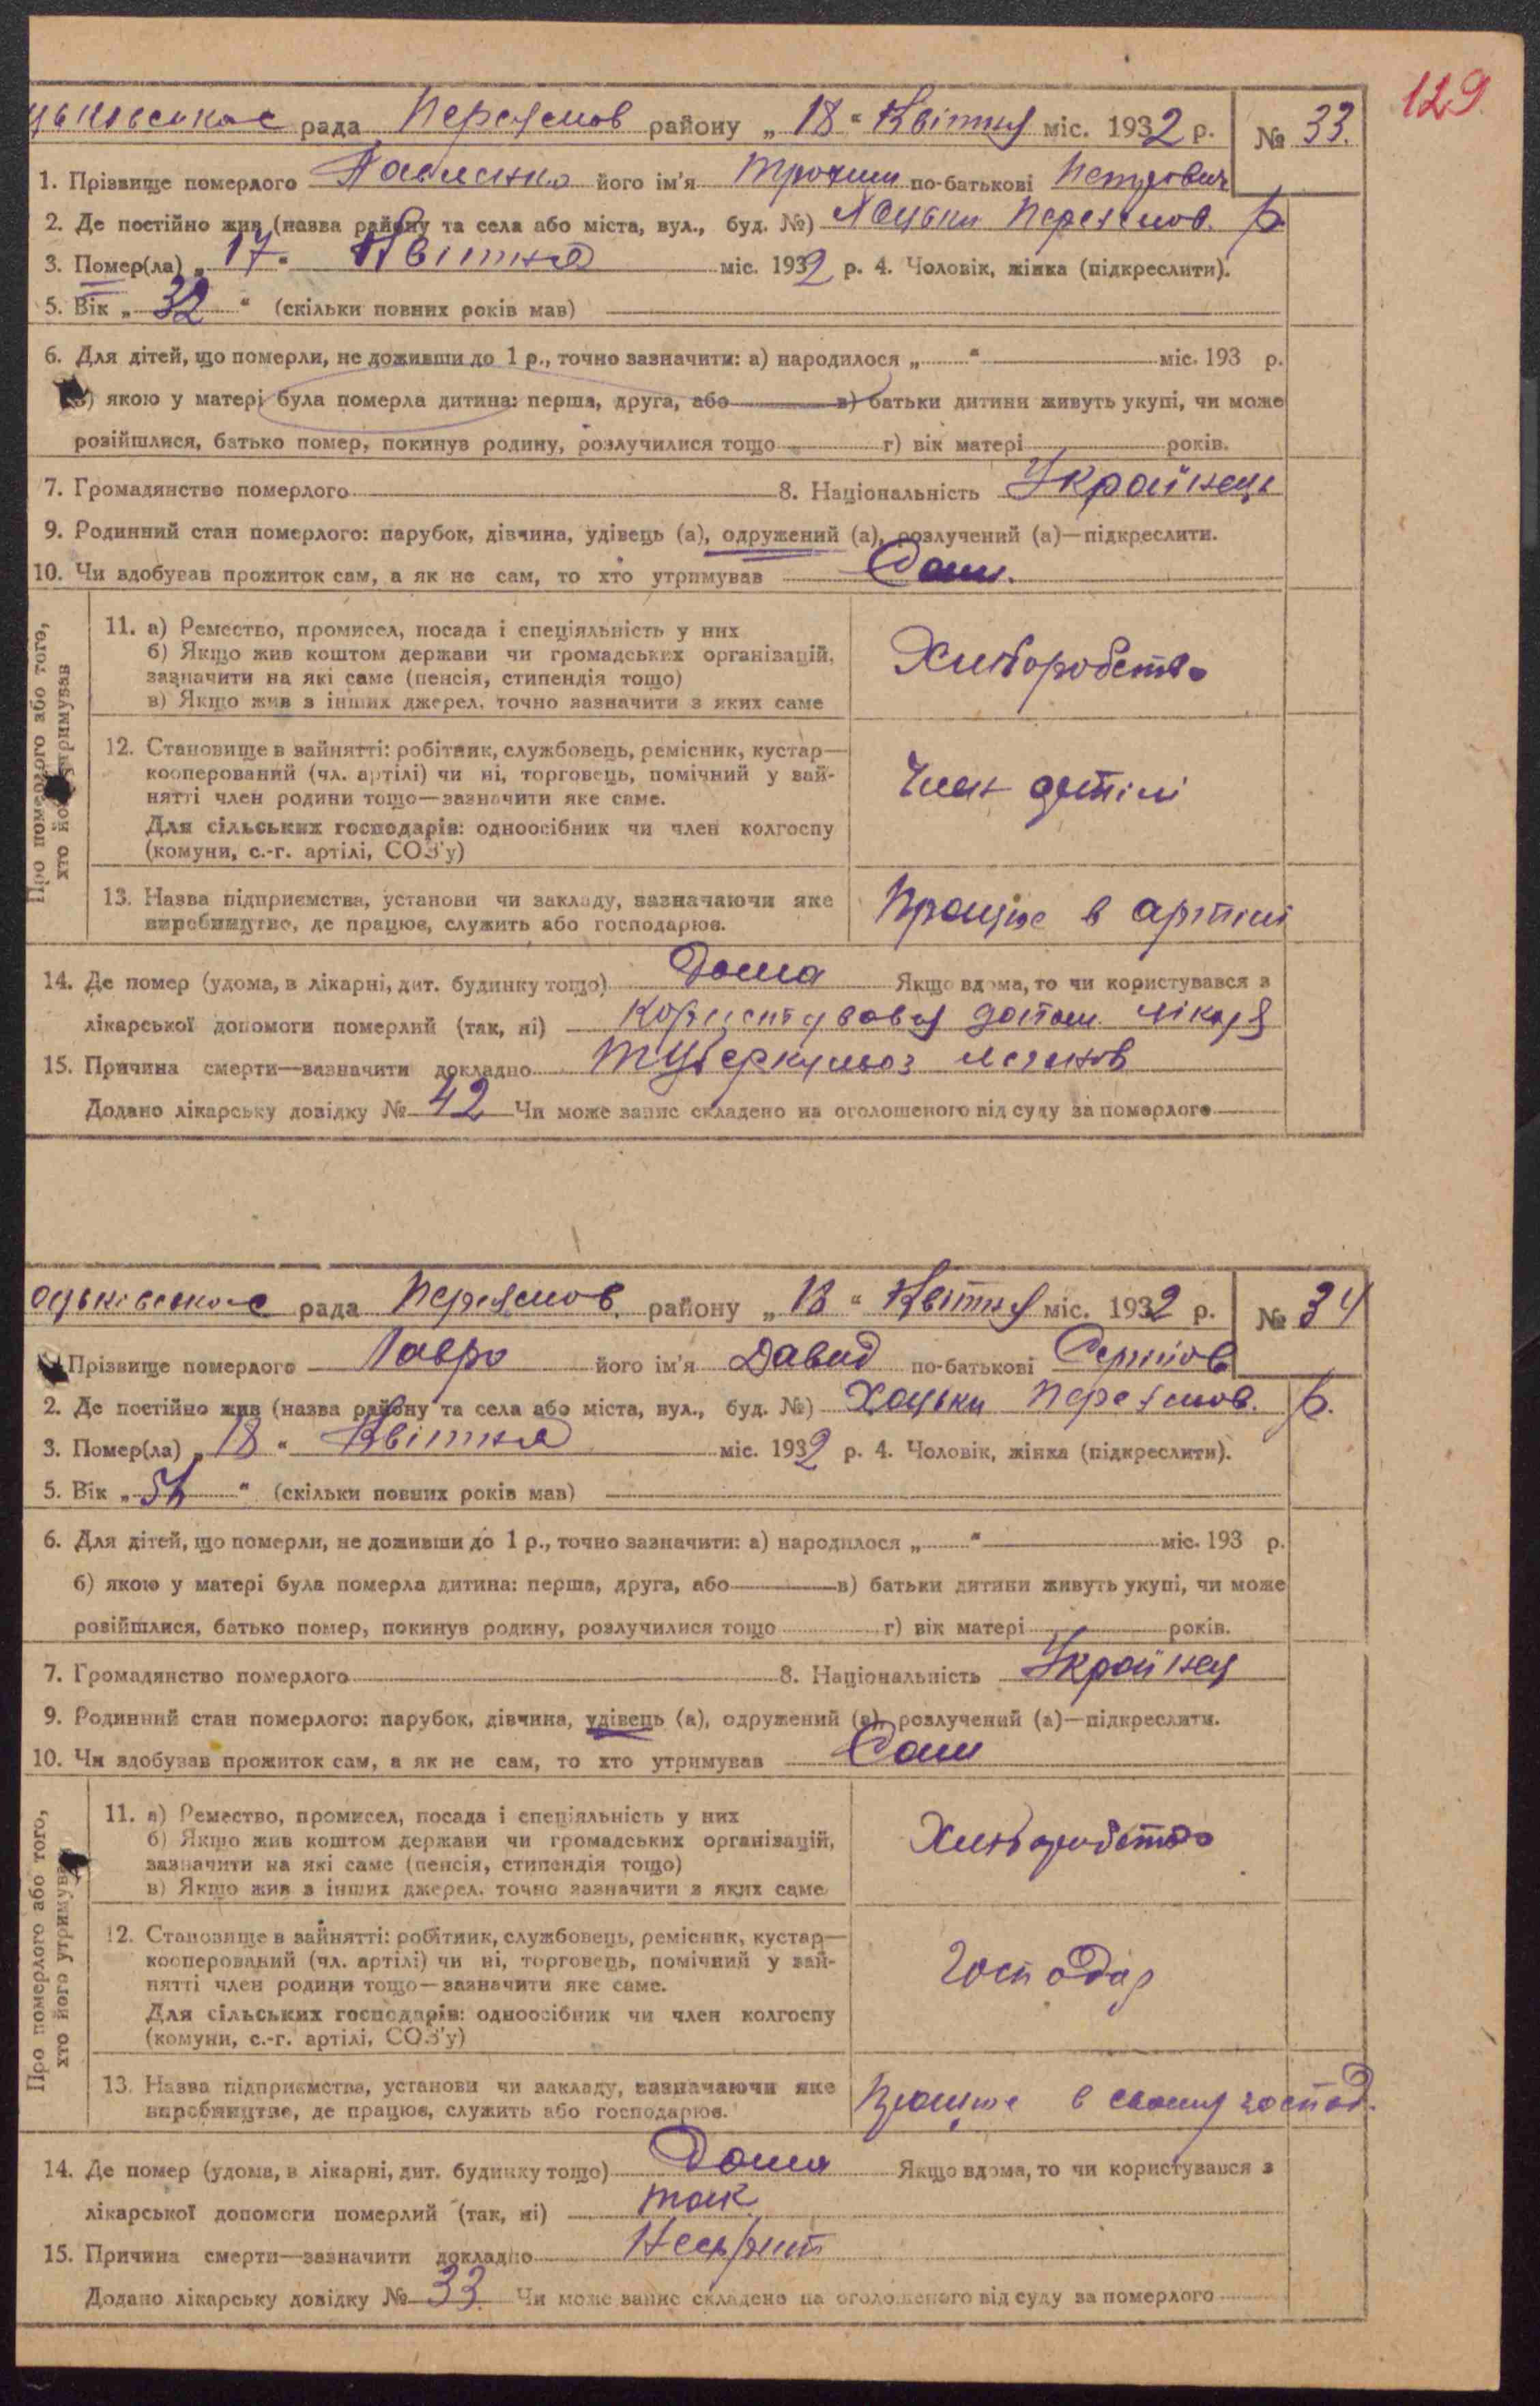 129
рада Переяслов району „ 18 “ Квітня міс. 1932 р. № 33.
1. Прізвище померлого Павленко його ім'я Трохим по-батькові Петрович
2. Де постійно жив (назва району та села або міста, вул., буд. №) Хоцьки Переяслов. р.
3. Помер(ла) „ 17 “ Квітня міс. 1932 р. 4. Чоловік, жінка (підкреслити).
5. Вік „ 32 “ (скільки повних років мав)
6. Для дітей, що померли, не доживши до 1 р., точно зазначити: а) народилося „ “ міс. 193 р.
б) якою у матері була померла дитина: перша, друга, або в) батьки дитини живуть укупі, чи може
розійшлися, батько помер, покинув родину, розлучилися тощо г) вік матері років.
7. Громадянство померлого 8. Національність Українець
9. Родинний стан померлого: парубок, дівчина, удівець (а), одружений (а), розлучений (а)—підкреслити.
10. Чи здобував прожиток сам, а як не сам, то хто утримував Сам.
Про померлого або того,
хто його утримував
11. а) Ремество, промисел, посада і спеціяльність у них
б) Якщо жив коштом держави чи громадських організацій,
зазначити на які саме (пенсія, стипендія тощо)
в) Якщо жив з інших джерел, точно зазначити з яких саме
Хліборобство
12. Становище в зайнятті: робітник, службовець, ремісник, кустар—
кооперований (чл. артілі) чи ні, торговець, помічний у зай-
нятті член родини тощо—зазначити яке саме.
Для сільських господарів: одноосібник чи член колгоспу
(комуни, с.-г. артілі, СОЗ'у)
Член артілі
13. Назва підприємства, установи чи закладу, зазначаючи яке
виробництво, де працює, служить або господарює.
Працює в артілі
14. Де помер (удома, в лікарні, дит. будинку тощо) Дома Якщо вдома, то чи користувався з
лікарської допомоги померлий (так, ні) Користувався допом. лікаря
15. Причина смерти—зазначити докладно Туберкульоз легенів
Додано лікарську довідку № 42 Чи може запис складено на оголошеного від суду за померлого
рада Переяслов. району „ 18 “ Квітня міс. 1932 р. № 34
Прізвище померлого Лавро його ім'я Давид по-батькові
2. Де постійно жив (назва району та села або міста, вул., буд. №) Хоцьки Переяслов. р.
3. Помер(ла) „ 18 “ Квітня міс. 1932 р. 4. Чоловік, жінка (підкреслити).
5. Вік „ “ (скільки повних років мав)
6. Для дітей, що померли, не доживши до 1 р., точно зазначити: а) народилося „ “ міс. 193 р.
б) якою у матері була померла дитина: перша, друга, або в) батьки дитини живуть укупі, чи може
розійшлися, батько помер, покинув родину, розлучилися тощо г) вік матері років.
7. Громадянство померлого 8. Національність Українец
9. Родинний стан померлого: парубок, дівчина, удівець (а), одружений (а), розлучений (а)—підкреслити.
10. Чи здобував прожиток сам, а як не сам, то хто утримував Сам
Про померлого або того,
хто його утримував
11. а) Ремество, промисел, посада і спеціяльність у них
б) Якщо жив коштом держави чи громадських організацій,
зазначити на які саме (пенсія, стипендія тощо)
в) Якщо жив з інших джерел, точно зазначити з яких саме
Хліборобство
12. Становище в зайнятті: робітник, службовець, ремісник, кустар—
кооперований (чл. артілі) чи ні, торговець, помічний у зай-
нятті член родини тощо—зазначити яке саме.
Для сільських господарів: одноосібник чи член колгоспу
(комуни, с.-г. артілі, СОЗ'у)
Господар
13. Назва підприємства, установи чи закладу, зазначаючи яке
виробництво, де працює, служить або господарює.
Працює в своему господ.
14. Де помер (удома, в лікарні, дит. будинку тощо) Дома Якщо вдома, то чи користувався з
лікарської допомоги померлий (так, ні) так
15. Причина смерти—зазначити докладно Нефрит
Додано лікарську довідку № 33 Чи може запис складено на оголошеного від суду за померлого